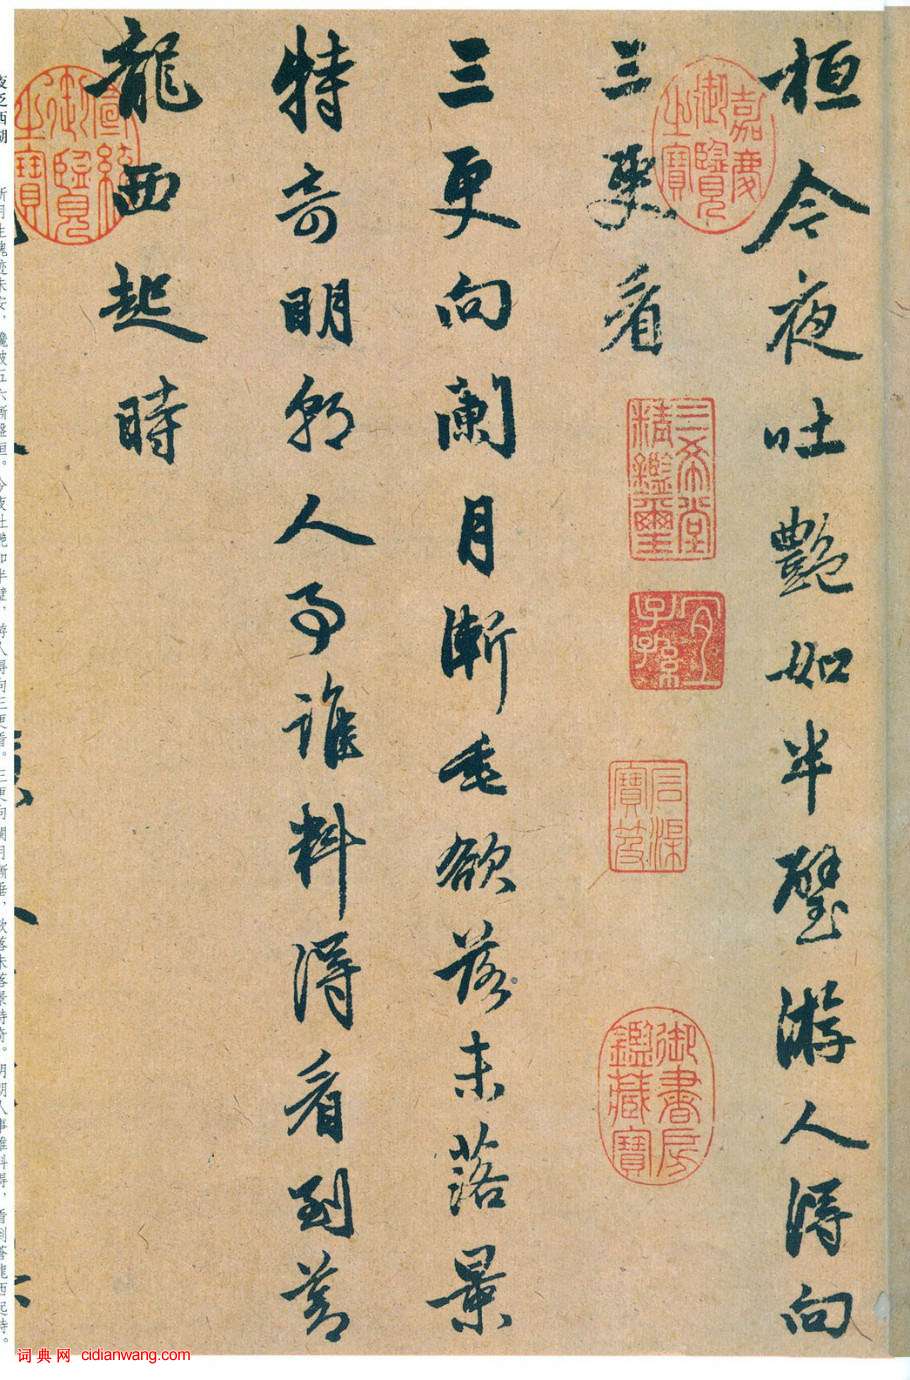 桓今夜吐艷如半璧游人得向
三更看
三更向闌月漸垂欲落未落景
特奇明朝人事誰料得看到蒼
龍西起時
嘉慶御覽之寶
三希堂精鑑璽
宜子孫
石渠寶笈
御書房鑑藏寶
宣統御覽之寶
夜泛西湖
新月生魄迹未安，纔破五六漸盤桓。今夜吐艷如半璧，游人得向三更看。三更向闌月漸垂，欲落未落景特奇。明朝人事誰料得，看到蒼龍西起時。
词典网 cidianwang.com